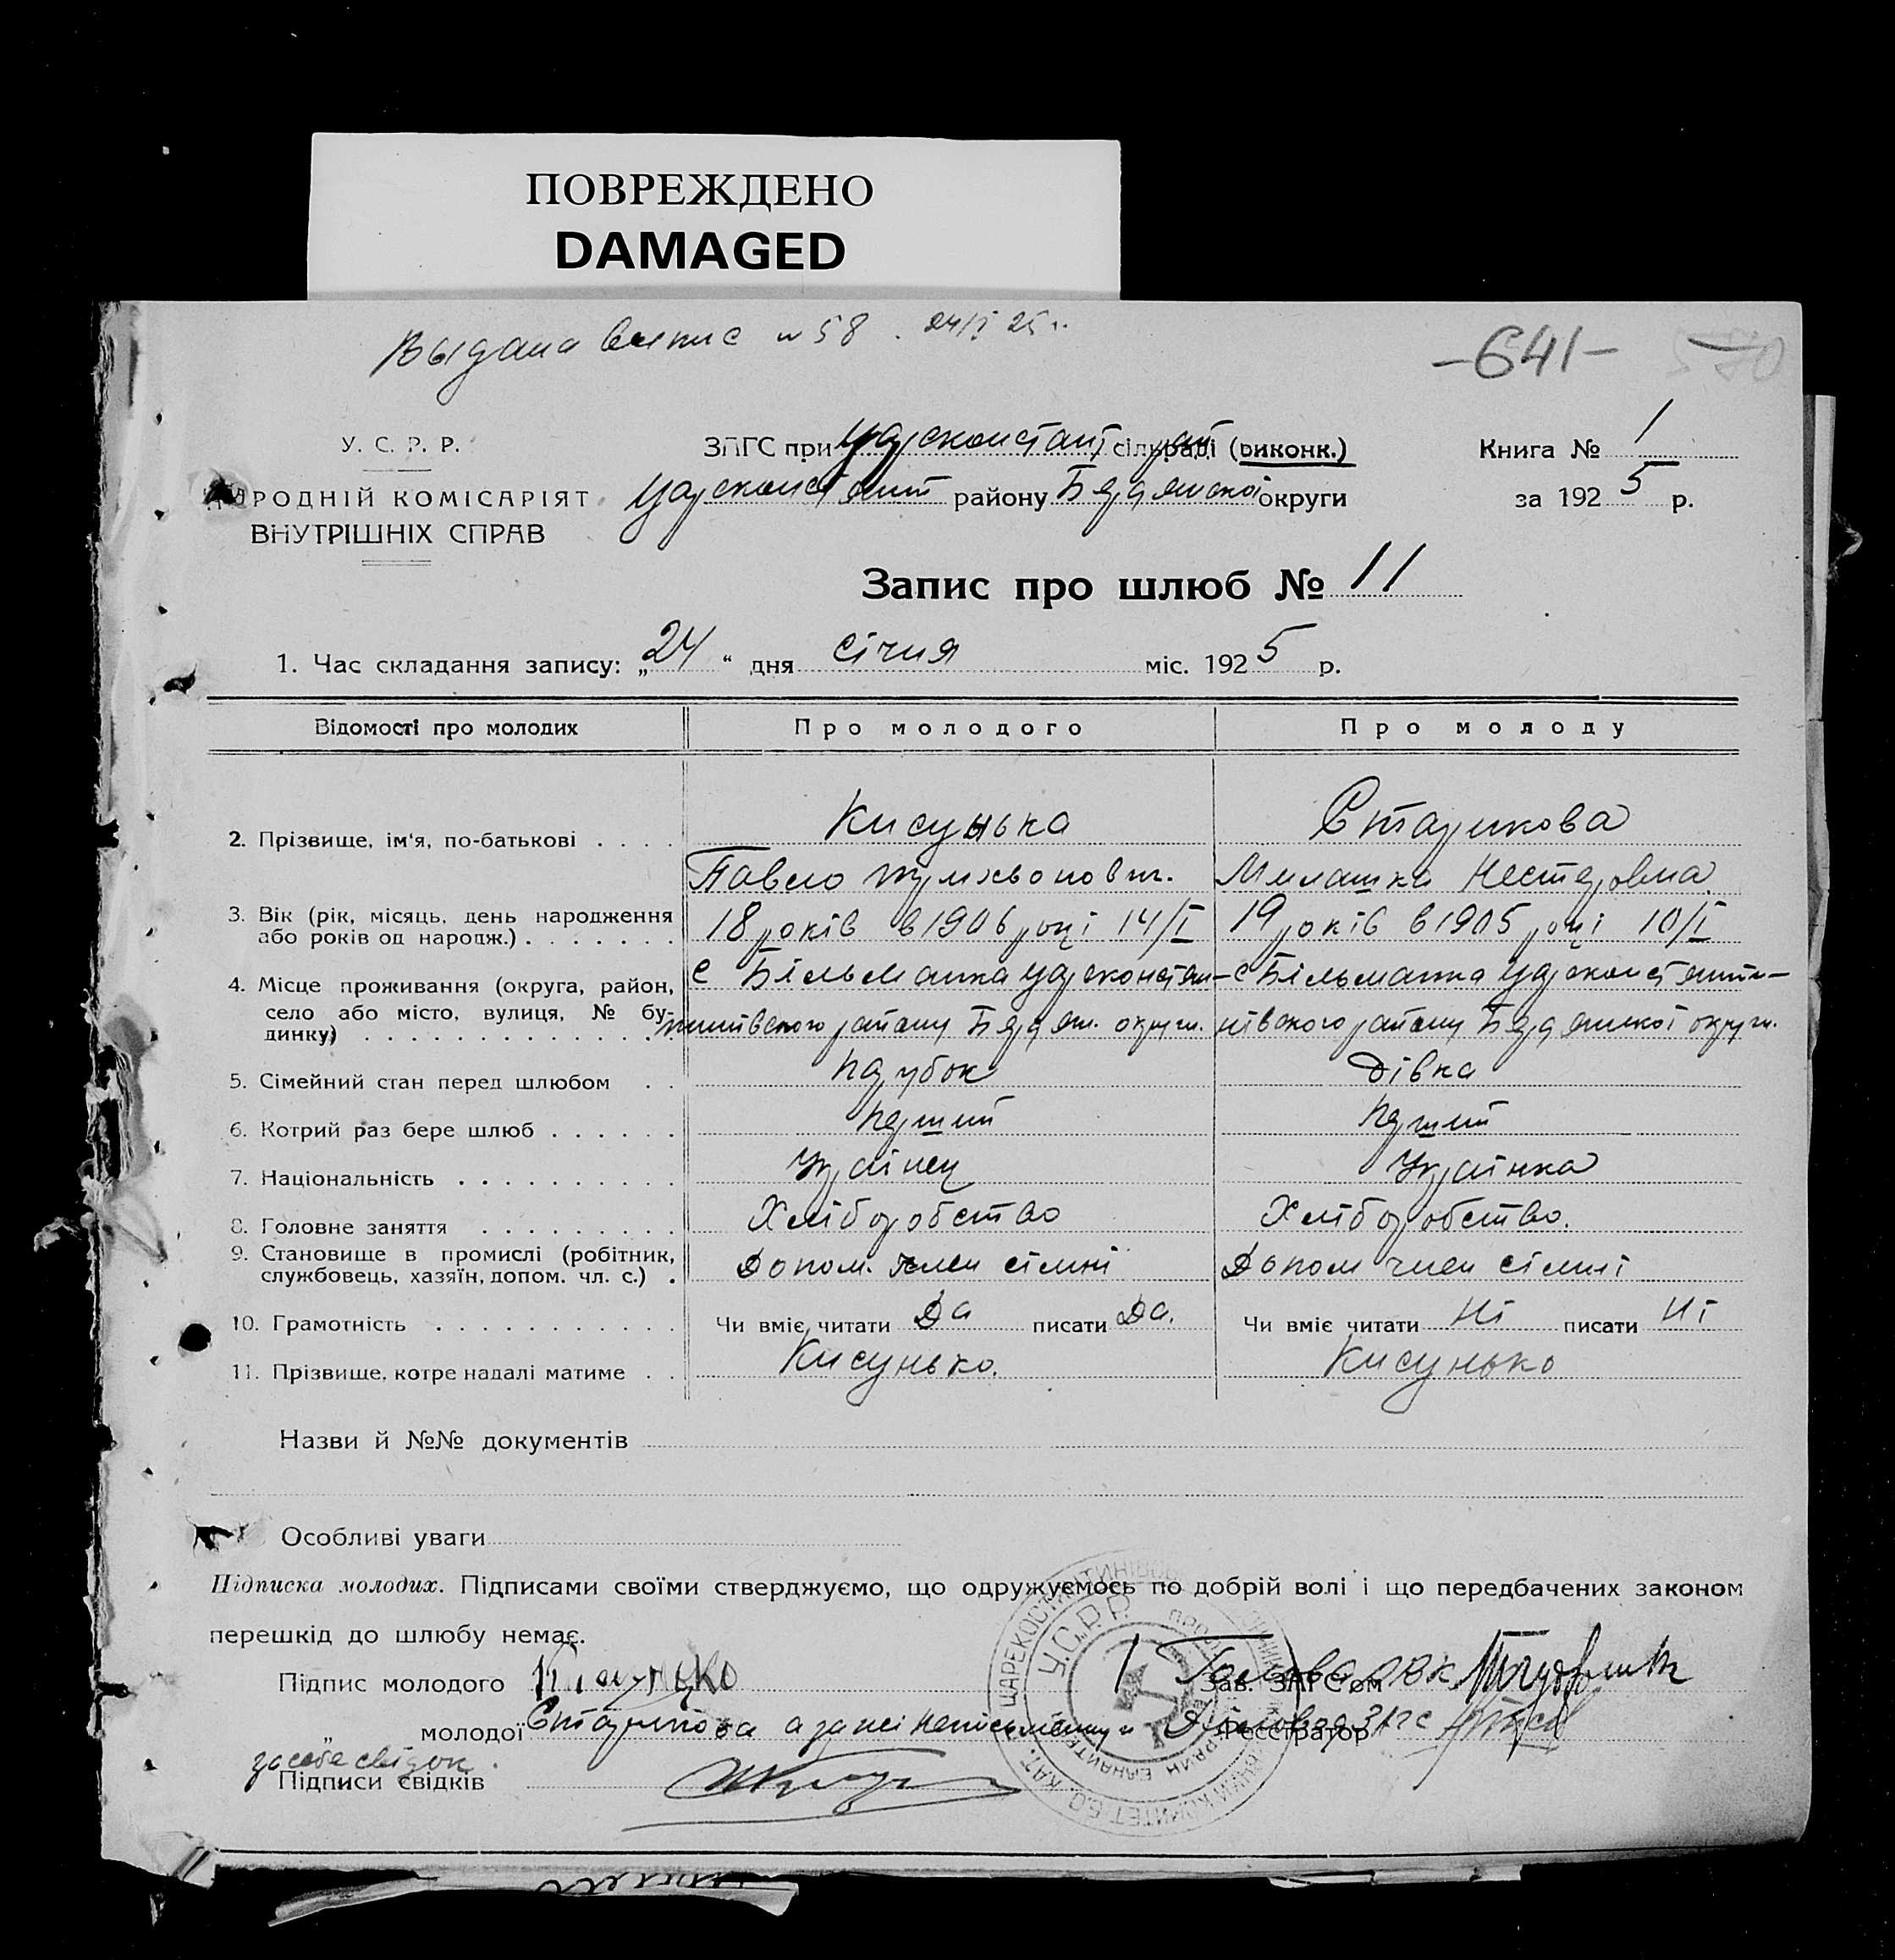 ПОВРЕЖДЕНО
DAMAGED
Выдана выпис № 58. 24/I 25 г.
-641-
У. С. Р. Р.
НАРОДНІЙ КОМІСАРІЯТ
ВНУТРІШНІХ СПРАВ
ЗАГС при Царсконстант рай сільраді (виконк.)
Царсконстант району Бердянської округи
Книга № 1
за 1925 р.
Запис про шлюб № 11
1. Час складання запису: „24“ дня січня міс. 1925 р.
Відомості про молодих Про молодого Про молоду
2. Прізвище, ім'я, по-батькові . . . . Кисунька Старикова
Павло Трихвонович. Милашка Нестеровна
3. Вік (рік, місяць, день народження або років од народж.) . . . . . . . 18 років в 1906 році 14/I 19 років в 1905 році 10/I
4. Місце проживання (округа, район, село або місто, вулиця, № будинку) . . . . . . . . . . . . . . с Більманка Царсконстан- с Більманка Царсконстанти-
тинівського району Бердян. округи. нівского району Бердянської округи.
5. Сімейний стан перед шлюбом . . парубок дівка
6. Котрий раз бере шлюб . . . . . . перший перший
7. Національність . . . . . . . . . . Українец Українка
8. Головне заняття . . . . . . . . . Хліборобство Хліборобство.
9. Становище в промислі (робітник, службовець, хазяїн, допом. чл. с.) . Допом. член сімні Допом член сімні
10. Грамотність . . . . . . . . . . . Чи вміє читати Да писати Да. Чи вміє читати Ні писати Ні
11. Прізвище, котре надалі матиме . . Кисунько. Кисунько
Назви й №№ документів
Особливі уваги
Підписка молодих. Підписами своїми стверджуємо, що одружуємось по добрій волі і що передбачених законом
перешкід до шлюбу немає.
Підпис молодого Кисунько Голова РВК Зав. ЗАГС'ом
„ молодої Старикова а за неі неписьменну и Діловод ЗАГС Реєстратор
за себе свідок.
Підписи свідків
У.С.Р.Р.